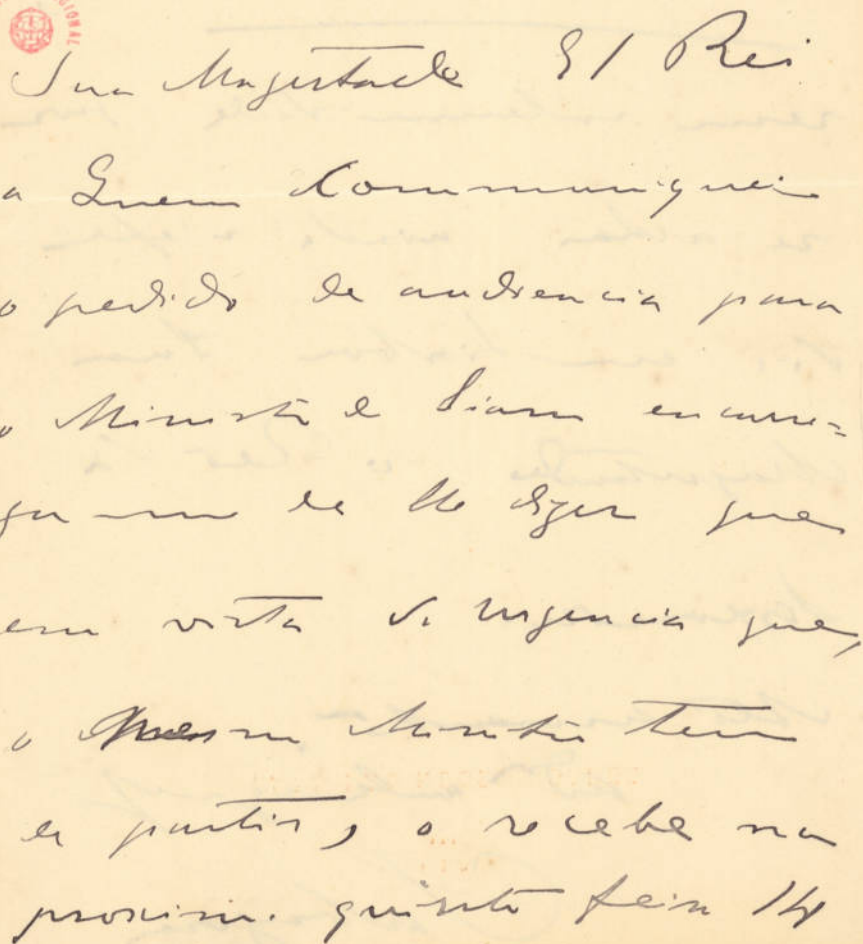 Sua Magestade El Rei
a Quem Communiquei
o pedido de audiencia para
o Ministro de Siam encarre=
ga-me de lhe dizer que
em vista da urgencia que,
o mesmo Ministro tem
de partir, o recebe na
proxima quinta feira 14